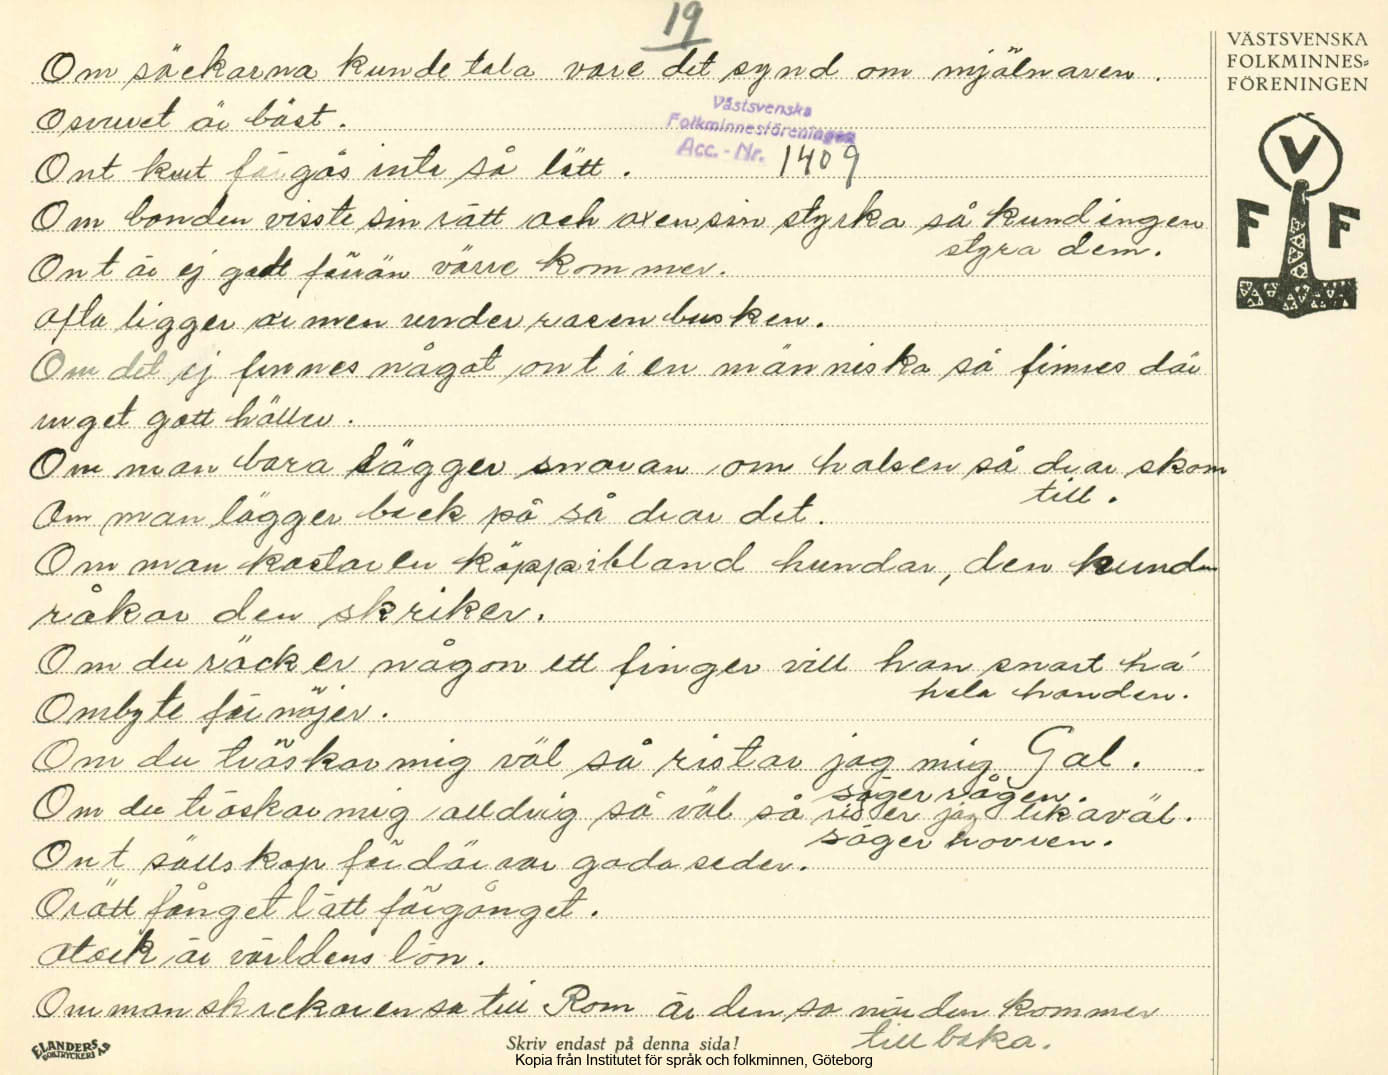 19
VÄSTSVENSKA
FOLKMINNES=
FÖRENINGEN
V
F F
Om säckarna kunde tala vore det synd om mjölnaren.
Västsvenska
Folkminnesföreningen
Acc.-Nr. 1409
Osvuret är bäst.
Ont krut förgås inte så lätt.
Om bonden visste sin rätt och oxen sin styrka så kund ingen
styra dem.
Ont är ej gott förrän värre kommer.
Ofta ligger ormen under rosenbusken.
Om det ej finnes något ont i en människa så finnes där
inget gott häller.
Om man bara lägger snaran om halsen så drar skam
till.
Om man lägger back på så drar det.
Om man kastar en käpp ibland hundar, den hunden
råkar den skriker.
Om du räcker någon ett finger vill han snart ha
hela handen.
Ombyte förnöjer.
Om du tröskar mig väl så ristar jag mig Gal.
säger rågen.
Om du tröskar mig alldrig så väl så rister jag likaväl.
säger havren.
Ont sällskap fördärvar goda seder.
Orätt fånget lätt förgånget.
Otack är världens lön.
Om man skrckar en so till Rom är den so när den kommer
tillbaka.
ELANDERS
BOKTRYCKERI AB
Skriv endast på denna sida!
Kopia från Institutet för språk och folkminnen, Göteborg